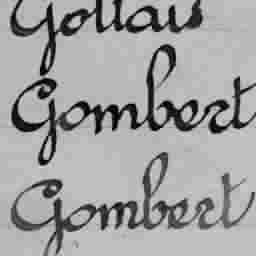 Gollais
Gombert
Gombert